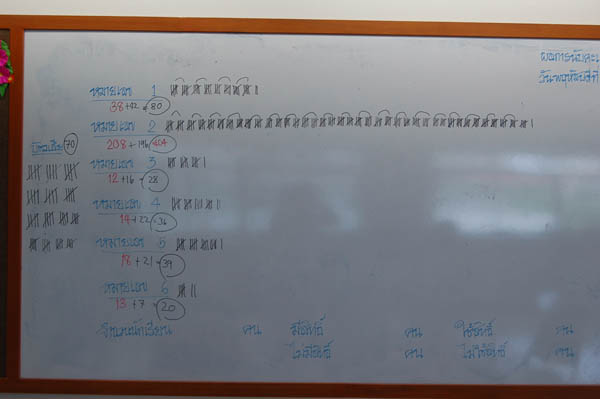 ผลการนับคะแ
วันพฤหัสบดีที่
หมายเลข 1
38+42=80
หมายเลข 2
208+196=404
70
หมายเลข 3
12+16=28
หมายเลข 4
14+22=36
หมายเลข 5
18+21=39
หมายเลข 6
13+7=20
จำนวนนักเรียน คน มีสิทธิ์ คน ใช้สิทธิ์ คน
ไม่มีสิทธิ์ คน ไม่ใช้สิทธิ์ คน